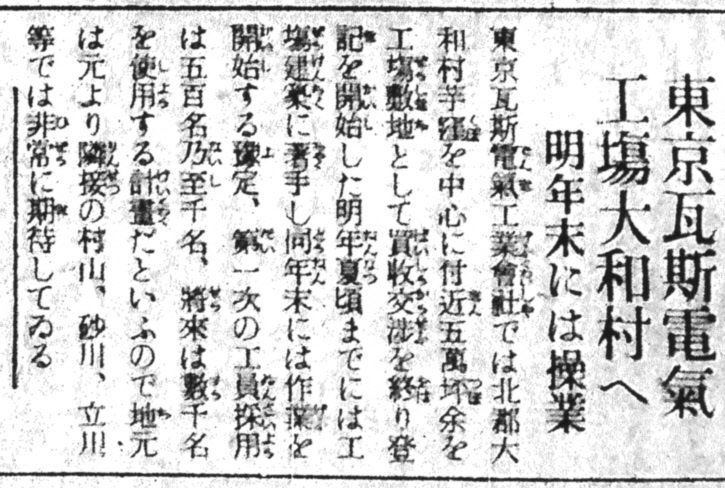 東京瓦斯電氣
工塲大和村へ
明年末には操業
東京瓦斯電氣工業會社では北郡大
和村芋窪を中心に付近五萬坪余を
工塲敷地として買收交渉を終り登
記を開始した明年夏頃までには工
塲建築に著手し同年末には作業を
開始する豫定、第一次の工員採用
は五百名乃至千名、將來は數千名
を使用する計畫だといふので地元
は元より隣接の村山、砂川、立川
等では非常に期待してゐる